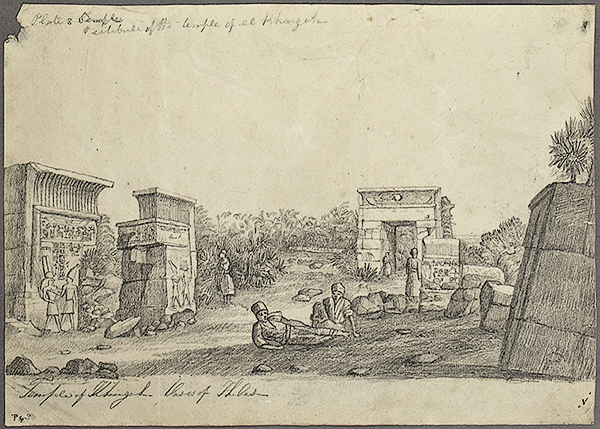 Plate 2 Temple
Vestibule of the temple of el Khargeh
Temple of Khargeh. Oasis of Thebes
P 4
V